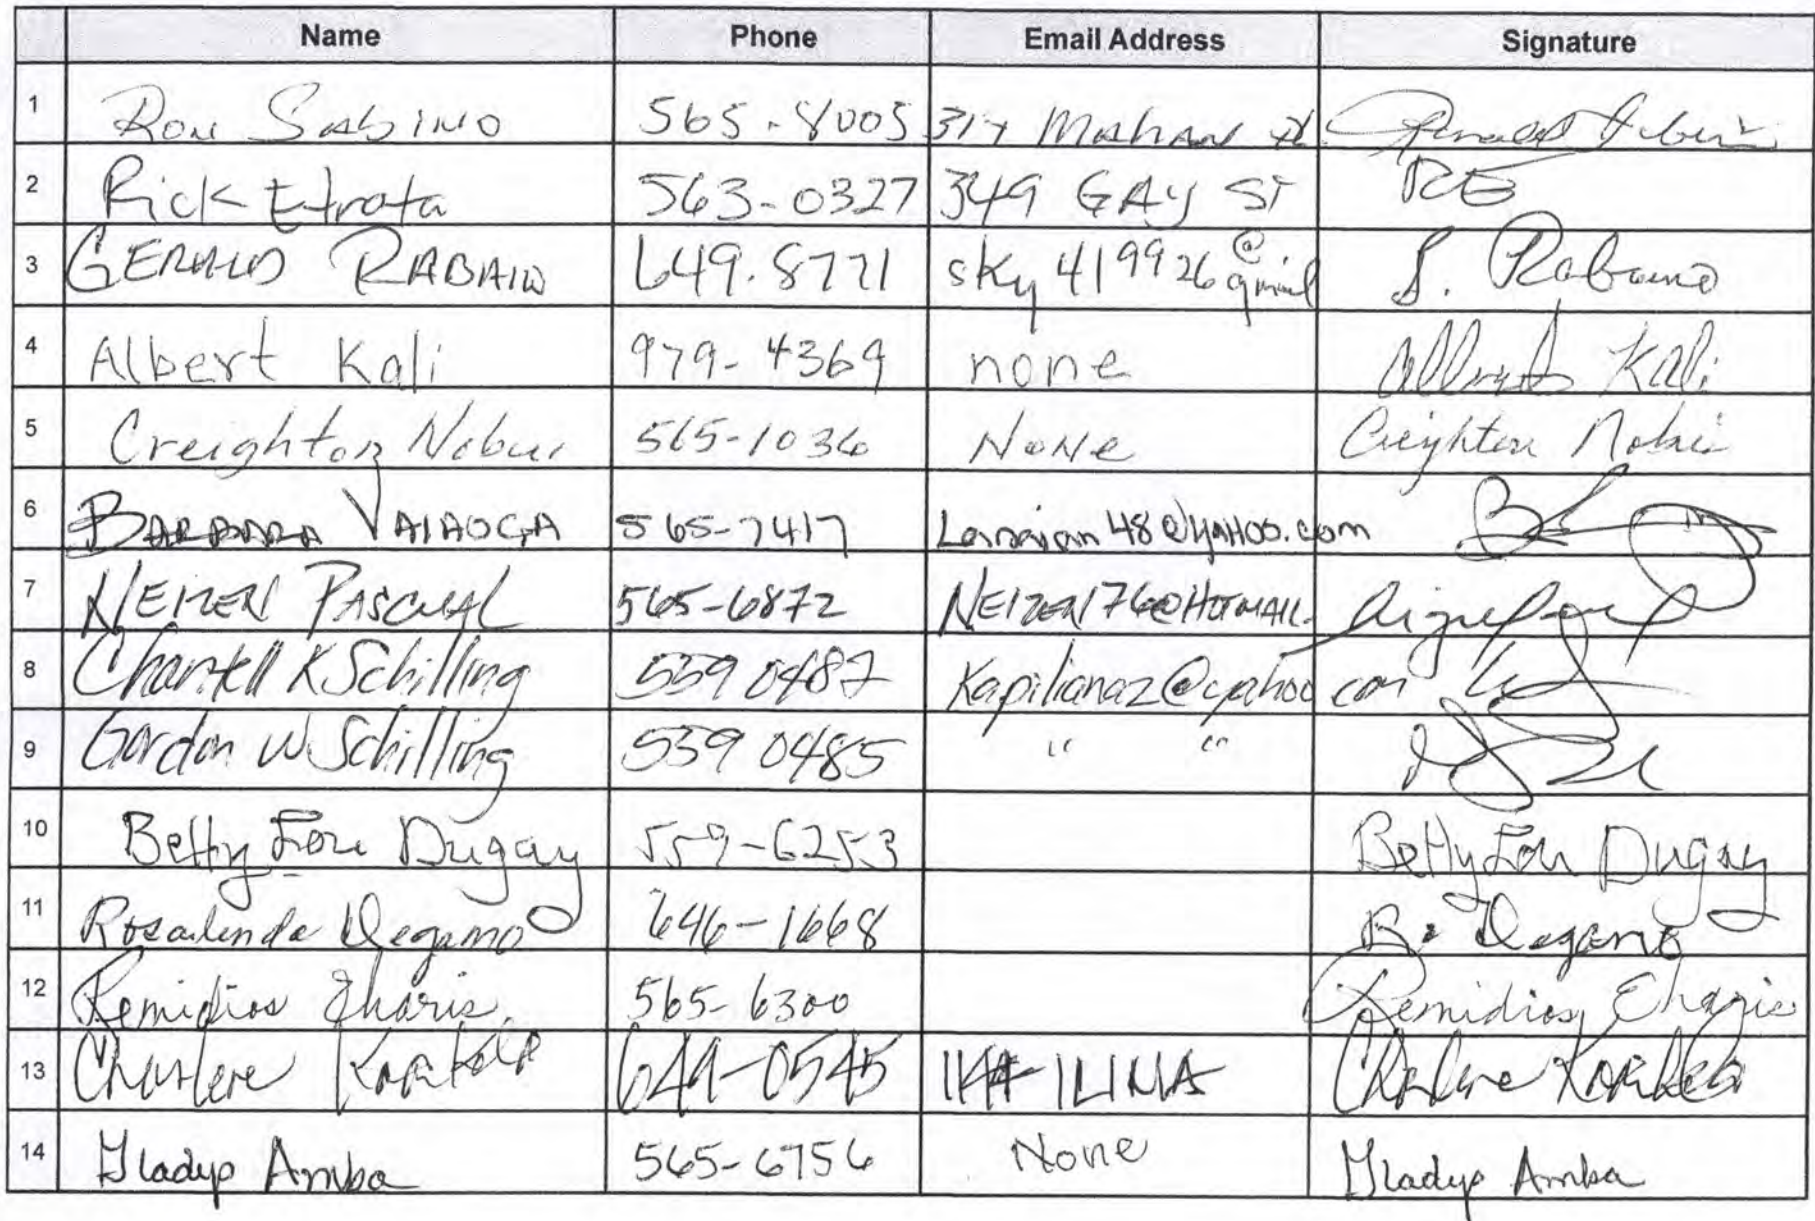 Name Phone Email Address Signature
1 Ron Sabino 565-8005 Mahana
2 Rick Etrata 563-0327 349 GAY ST RE
3 GERALD RABAINO 649.8771 sky 419926 @ gmail Rabaino
4 Albert Kali 979-4369 none Albert Kali
5 Creighton 565-1036 NoNe Creighton
6 BARBARA VAIAOGA 565-7417 Lanaian48@yAHOO.com
7 NEIZEN PASCUAL 565-6872 NEIZEN176@HOTMAIL.
8 Chantell K Schilling 559 0487 Kapilianaz@yahoo com
9 Gordon W Schilling 559 0485 " "
10 Betty Lou Dugay 559-6253 Betty Lou Dugay
11 Rosalinda Degamo 646-1668 R. Degamo
12 Remidios Eharis 565-6300 Remidios Eharis
13 Charlene 649-0545 Charlene
14 Gladys Amba 565-6756 None Gladys Amba